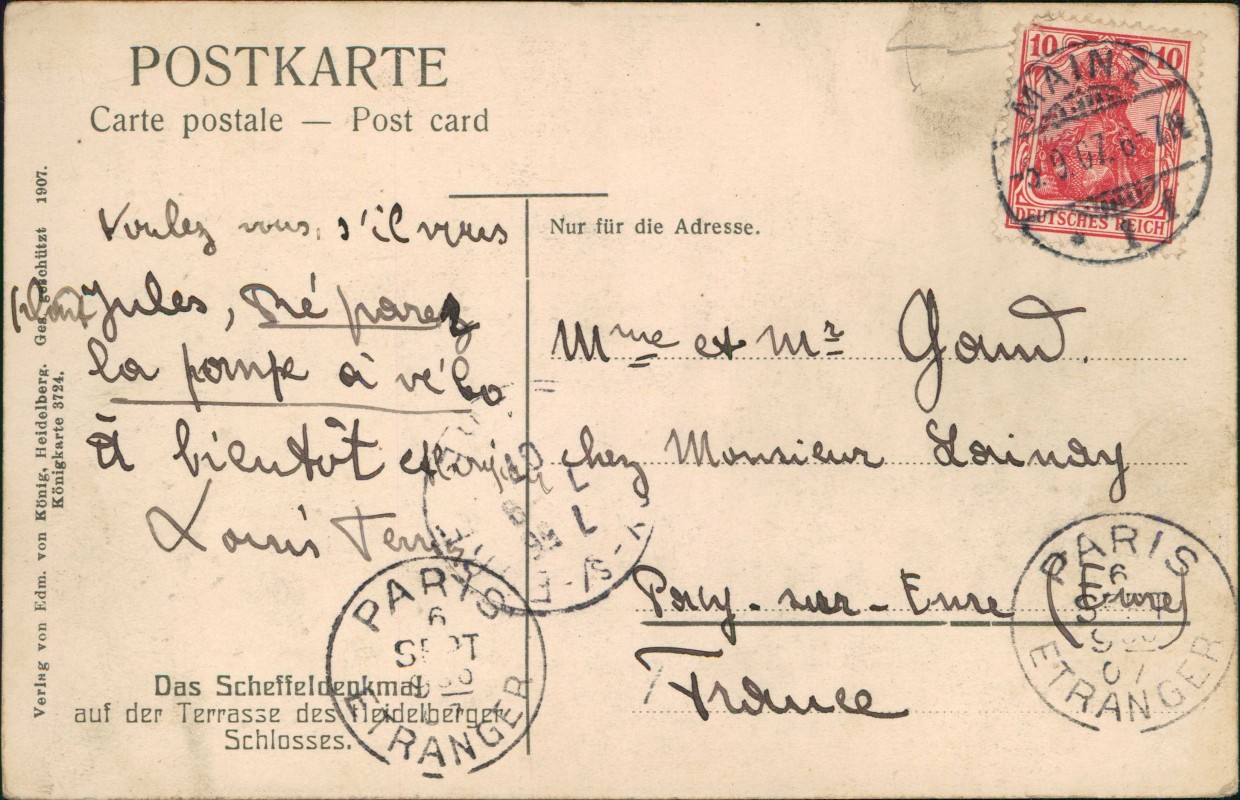 POSTKARTE
Carte postale — Post card
Verlag von Edm. von König, Heidelberg. Ges. geschützt 1907.
Königkarte 3724.
Voulez vous, s'il vous
plait Jules, Réparez
la pompe à vélo
à bientôt
Louis
Das Scheffeldenkmal
auf der Terrasse des Heidelberger
Schlosses.
Nur für die Adresse.
10 10
DEUTSCHES REICH
MAINZ
5.9.07. 6-7N
* 1
Mme et Mr Gand.
chez Monsieur Launay
Pacy-sur-Eure (Eure)
France
PARIS
6
SEPT
07
ETRANGER
PARIS
6
07
ETRANGER